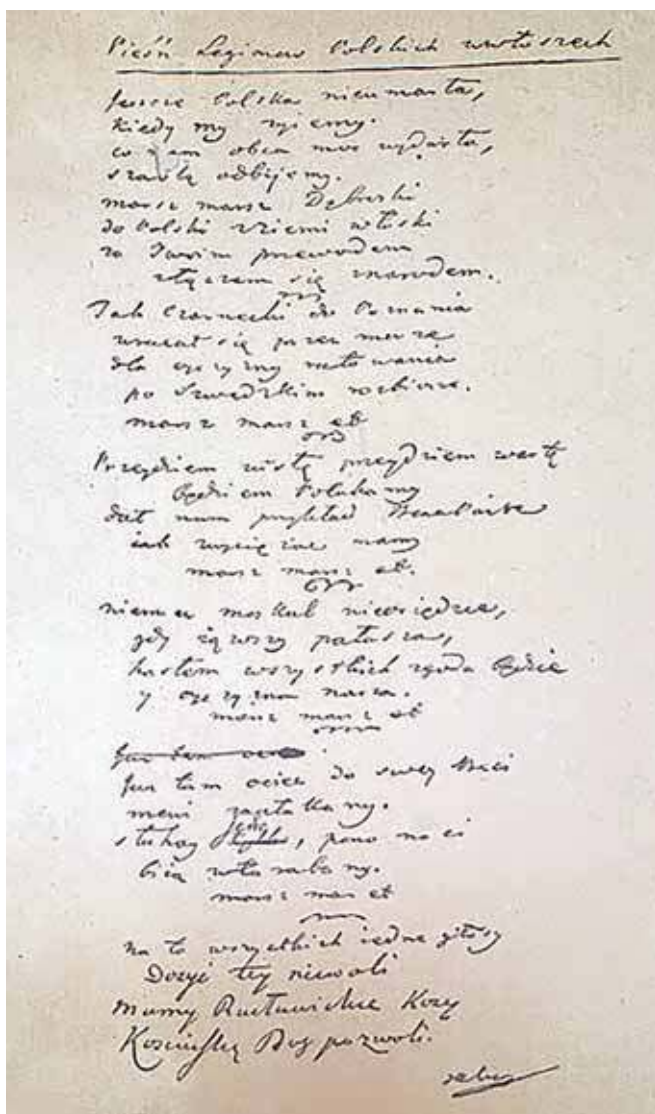 Pieśń Legionow Polskich wewłoszech
Jeszcze Polska nieumarła,
kiedy my żyiemy.
co nam obca moc wydarła,
szablą odbijemy.
marsz marsz Dąbroski
do Polski zziemi włoski
za Twoim przewodem
złączem się znarodem.
Jak Czarnecki do Poznania
wracał się przez morze
dla oyczyzny ratowania
po Szwedzkim rozbiorze.
marsz marsz et
Przeydziem wisłę przeydziem wartę
będziem Polakamy
dał nam przykład Bonaparte
iak zwyciężac mamy
marsz marsz et.
niemiec moskal nieosiędzie,
gdy iąwszy pałasza,
hasłem wszystkich zgoda będzie
y oyczyzna nasza.
marsz marsz et
Już tam ociec
Już tam ociec do swey Basi
mowi zapłakany.
słuchay , pono nasi
bią wtarabany.
marsz mar et
na to wszystkich iedne głosy
Dosyć tey niewoli
mamy Racławickie Kosy
Kosciuszkę Bog pozwoli.